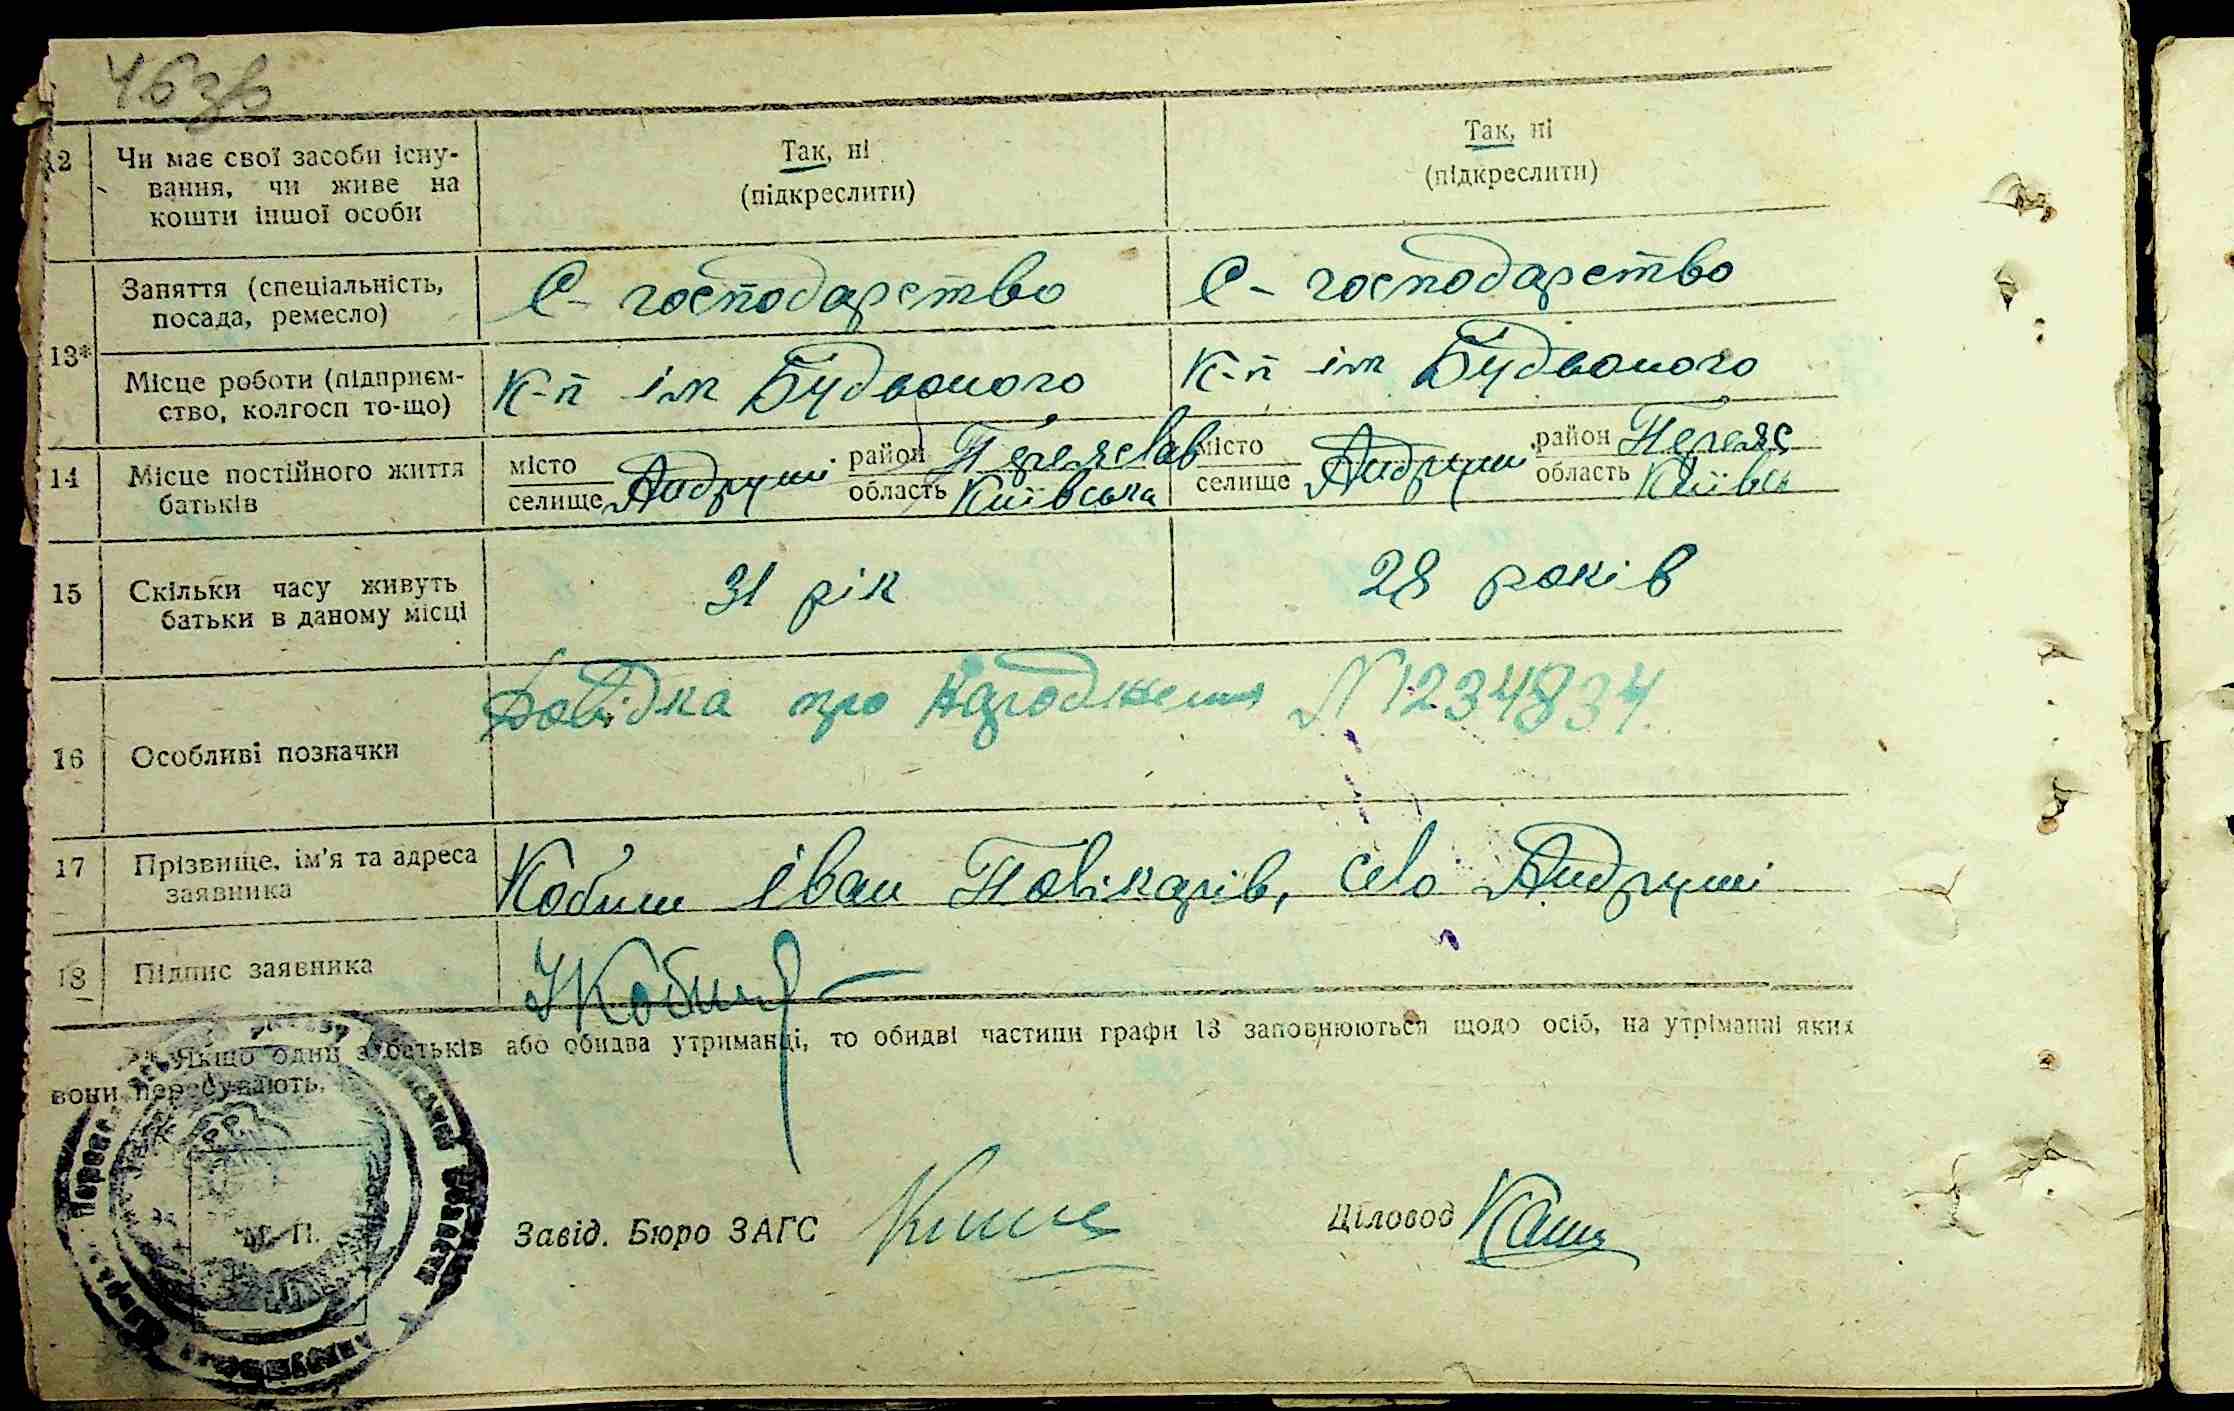 46 зв
12 Чи має свої засоби існу- Так, ні Так, ні
вання, чи живе на (підкреслити) (підкреслити)
кошти іншої особи
Заняття (спеціальність, С-господарство С-господарство
посада, ремесло)
13*
Місце роботи (підприєм- К-п ім Будьоного К-п ім Будьоного
ство, колгосп то-що)
14 Місце постійного життя місто район Переяслав місто район Переяс
батьків селище Андруші область Київська селище Андруші область Київсь
15 Скільки часу живуть 31 рік 28 років
батьки в даному місці
Довідка про народження N 1234834.
16 Особливі позначки
17 Прізвище, ім'я та адреса Кобиш Іван Полікарпів, село Андруші
заявника
18 Підпис заявника
* Якщо один з батьків або обидва утриманці, то обидві частини графи 13 заповнюються щодо осіб, на утріманні яких
вони перебувають.
М. П.
Завід. Бюро ЗАГС
Діловод